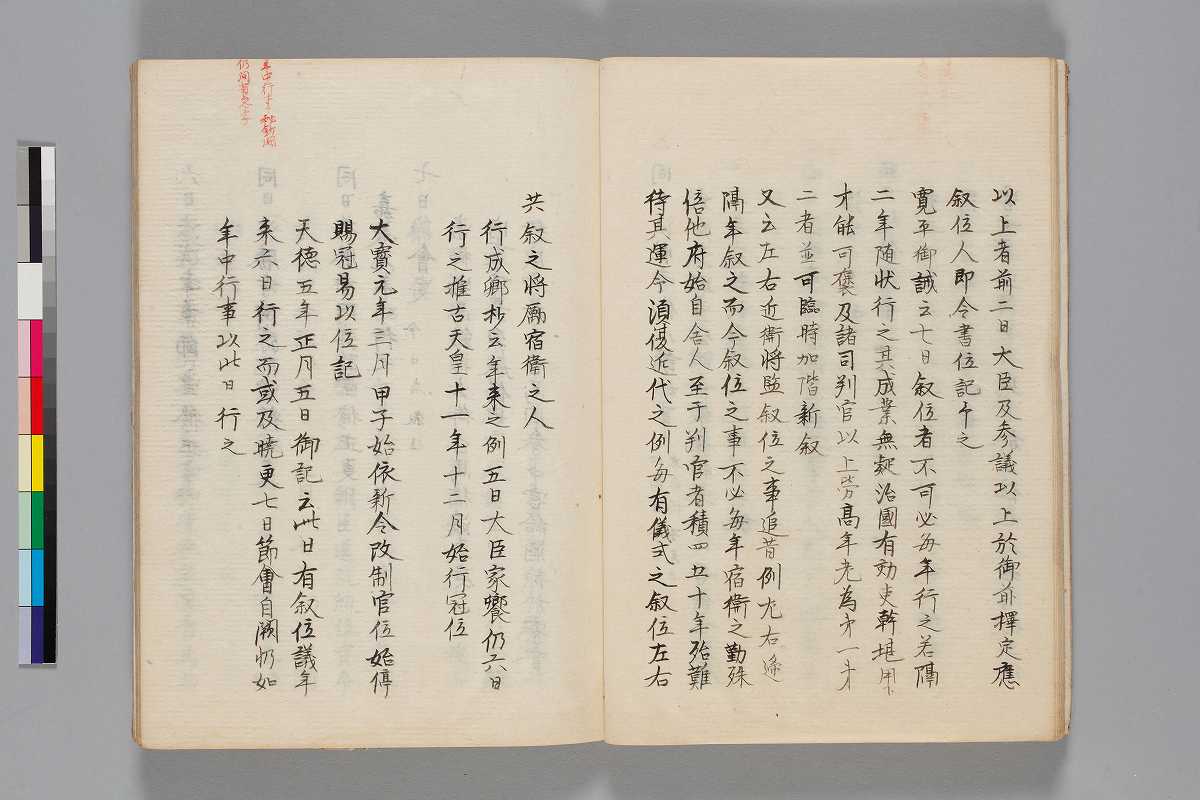 以上者前二日大臣及参議以上於御前擇定應
叙位人即令書位記下之
寛平御誡云七日叙位者不可必毎年行之若隔
二年随状行之其成業無疑治國有効吏幹堪用
才能可褒及諸司判官以上労高年老為第一第
二者並可臨時加階新叙
又云左右近衛将監叙位之事追昔例尤右遥
隔年叙之而今叙位之事不必毎年宿衛之勤殊
倍他府始自舎人至于判官者積四五十年殆難
待其運今須復近代之例毎有儀式之叙位左右
共叙之将励宿衛之人
行成卿抄云年来之例五日大臣家饗仍六日
行之推古天皇十一年十二月始行冠位
大寶元年三月甲子始依新令改制官位始停
賜冠易以位記
天徳五年正月五日御記云此日有叙位議年
来六日行之而或及暁更七日節會自闕仍如
年中行事以此日行之
年中行事